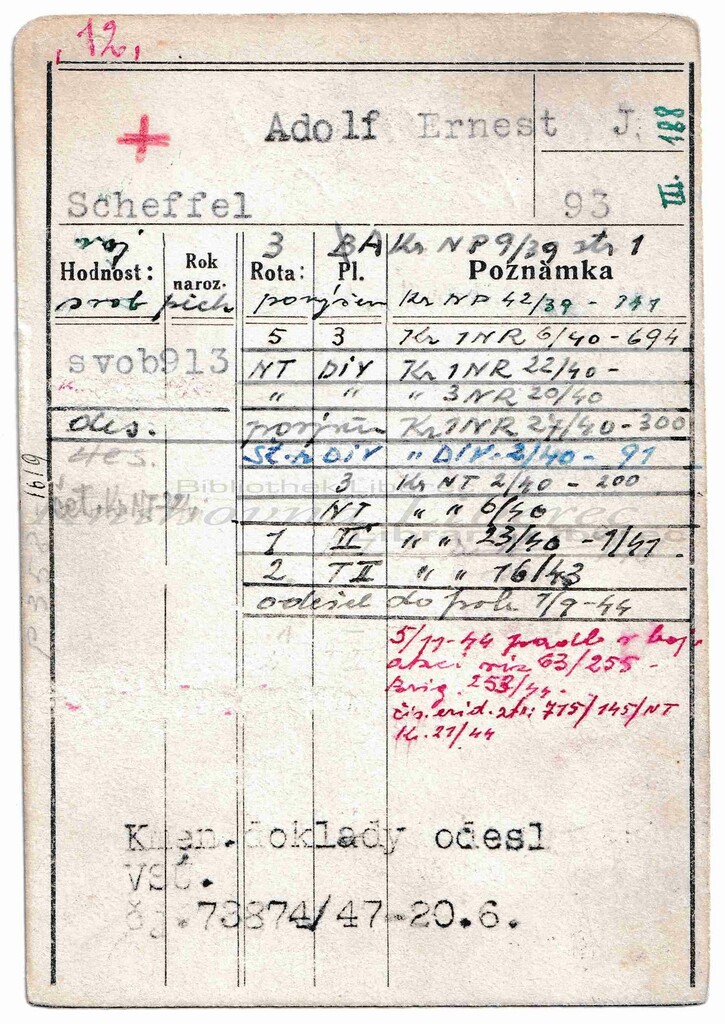 12.
Adolf Ernest J.
III. 188
Scheffel 93
voj 3 BA Kr NP 9/39 str 1
Hodnost: Rok naroz. Rota: Pl. Poznámka
svob pěch Kr NP 42/39 - 141
5 3 Kr 1NR 6/40 - 694
svob 913
NT DIV Kr 1NR 22/40 -
" " " 3NR 20/40
des. Kr 1NR 27/40 - 300
des.
Št. r DIV " DIV. 2/40 - 91
3 Kr NT 2/40 - 200
1619
NT " " 6/40
1 II " " 23/40 - 1/41
2 T II " " 16/43
odešel do pole 1/9-44
5/11-44 padl v boj.
akci viz 63/255 -
Brig. 253/44 -
čís. evid. 715/145/NT
K. 21/44
Kmen.doklady odesl
VSÚ.
čj.73874/47-20.6.